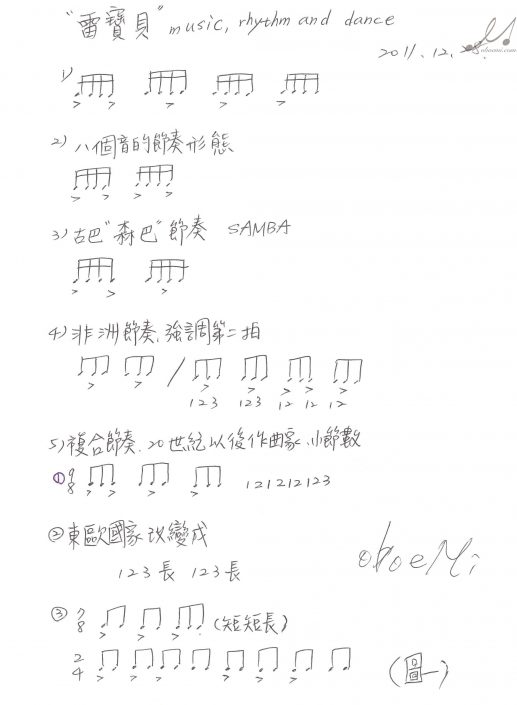 "雷寶貝" music, rhythm and dance
2011.12.
oboemi.com
1)
2) 八個音的節奏形態
3) 古巴"森巴"節奏 SAMBA
4) 非洲節奏, 強調第二拍
/
123 123 12 12 12
5) 複合節奏, 20世紀以後作曲家, 小節數
① 9/8 121212123
② 東歐國家改變成
123長 123長
oboeMi
③ 7/8 (短短長)
2/4
(圖一)